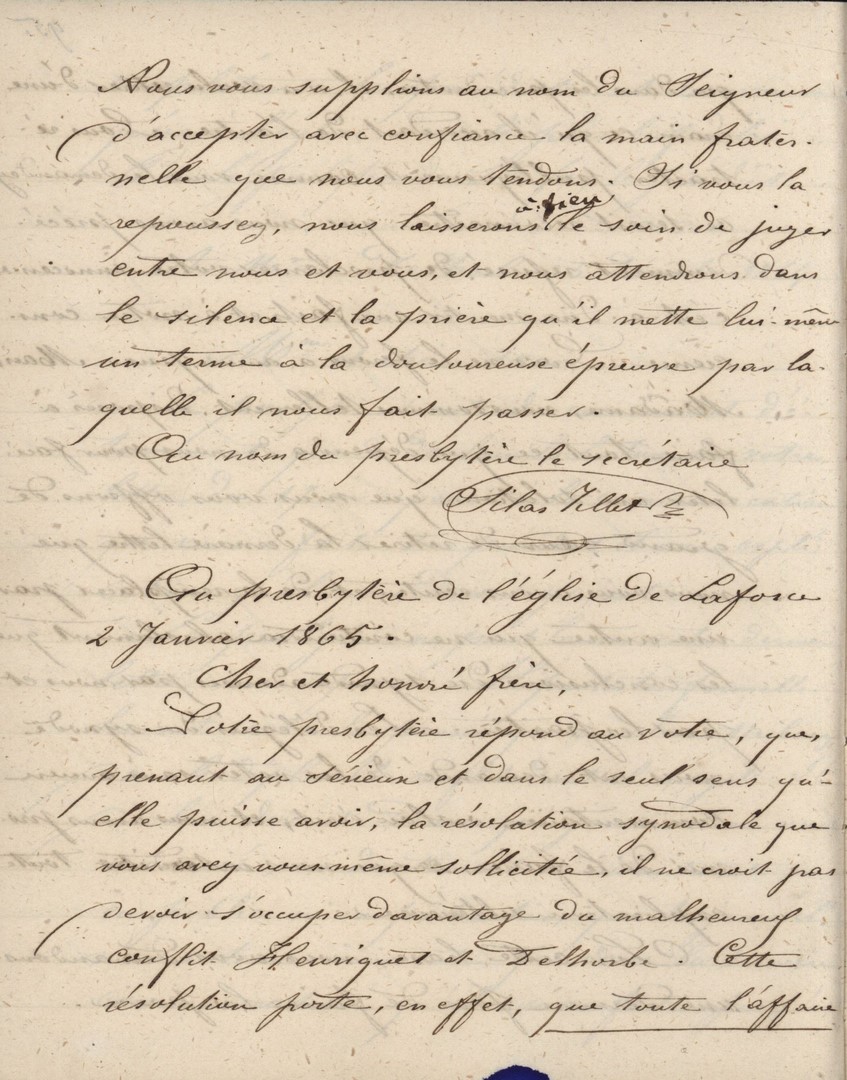 Nous vous supplions au nom du Seigneur
d'accepter avec confiance la main frater-
nelle que nous vous tendons. Si vous la
repoussez, nous laisserons à Dieu le soin de juger
entre nous et vous, et nous attendrons dans
le silence et la prière qu'il mette lui-même
un terme à la douloureuse épreuve par la-
quelle il nous fait passer.
Au nom du presbytère le secrétaire
Silas
Au presbytère de l'église de Laforce
2 Janvier 1865.
Cher et honoré frère,
Notre presbytère répond au votre, que,
prenant au sérieux et dans le seul sens qu'-
elle puisse avoir, la résolution synodale que
vous avez vous-même sollicitée, il ne croit pas
devoir s'occuper davantage du malheureux
conflit Henriquet et Delhorbe. Cette
résolution porte, en effet, que toute l'affaire